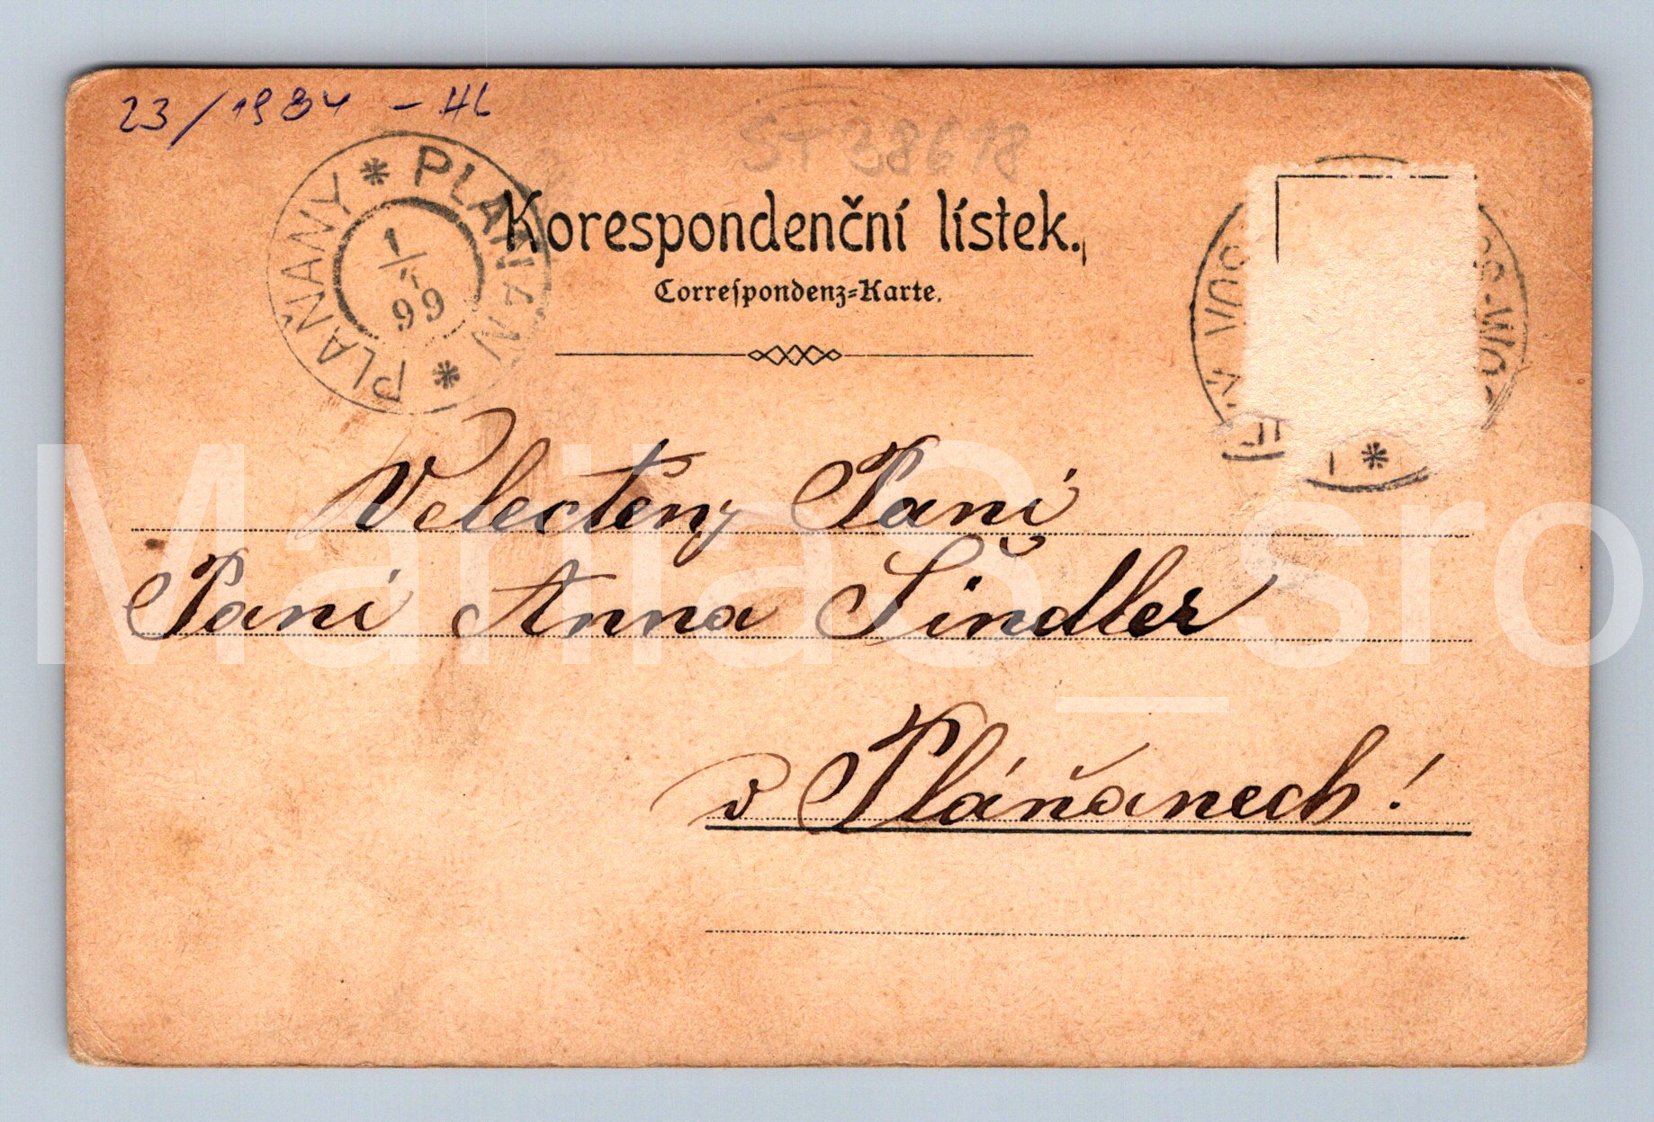 23/1984 - HL
ST 38618
PLAŇANY * PLANIAN *
1/
99
Korespondenční lístek.
Correspondenz-Karte.
*
Velectěný Paní
Paní Anna Šindler
v Pláňanech!
MarilaS_sro